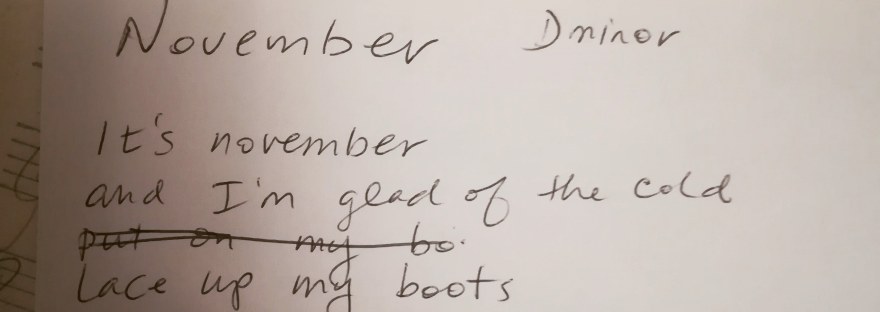 November Dminor
It's november
and I'm glad of the cold
put on my bo
Lace up my boots